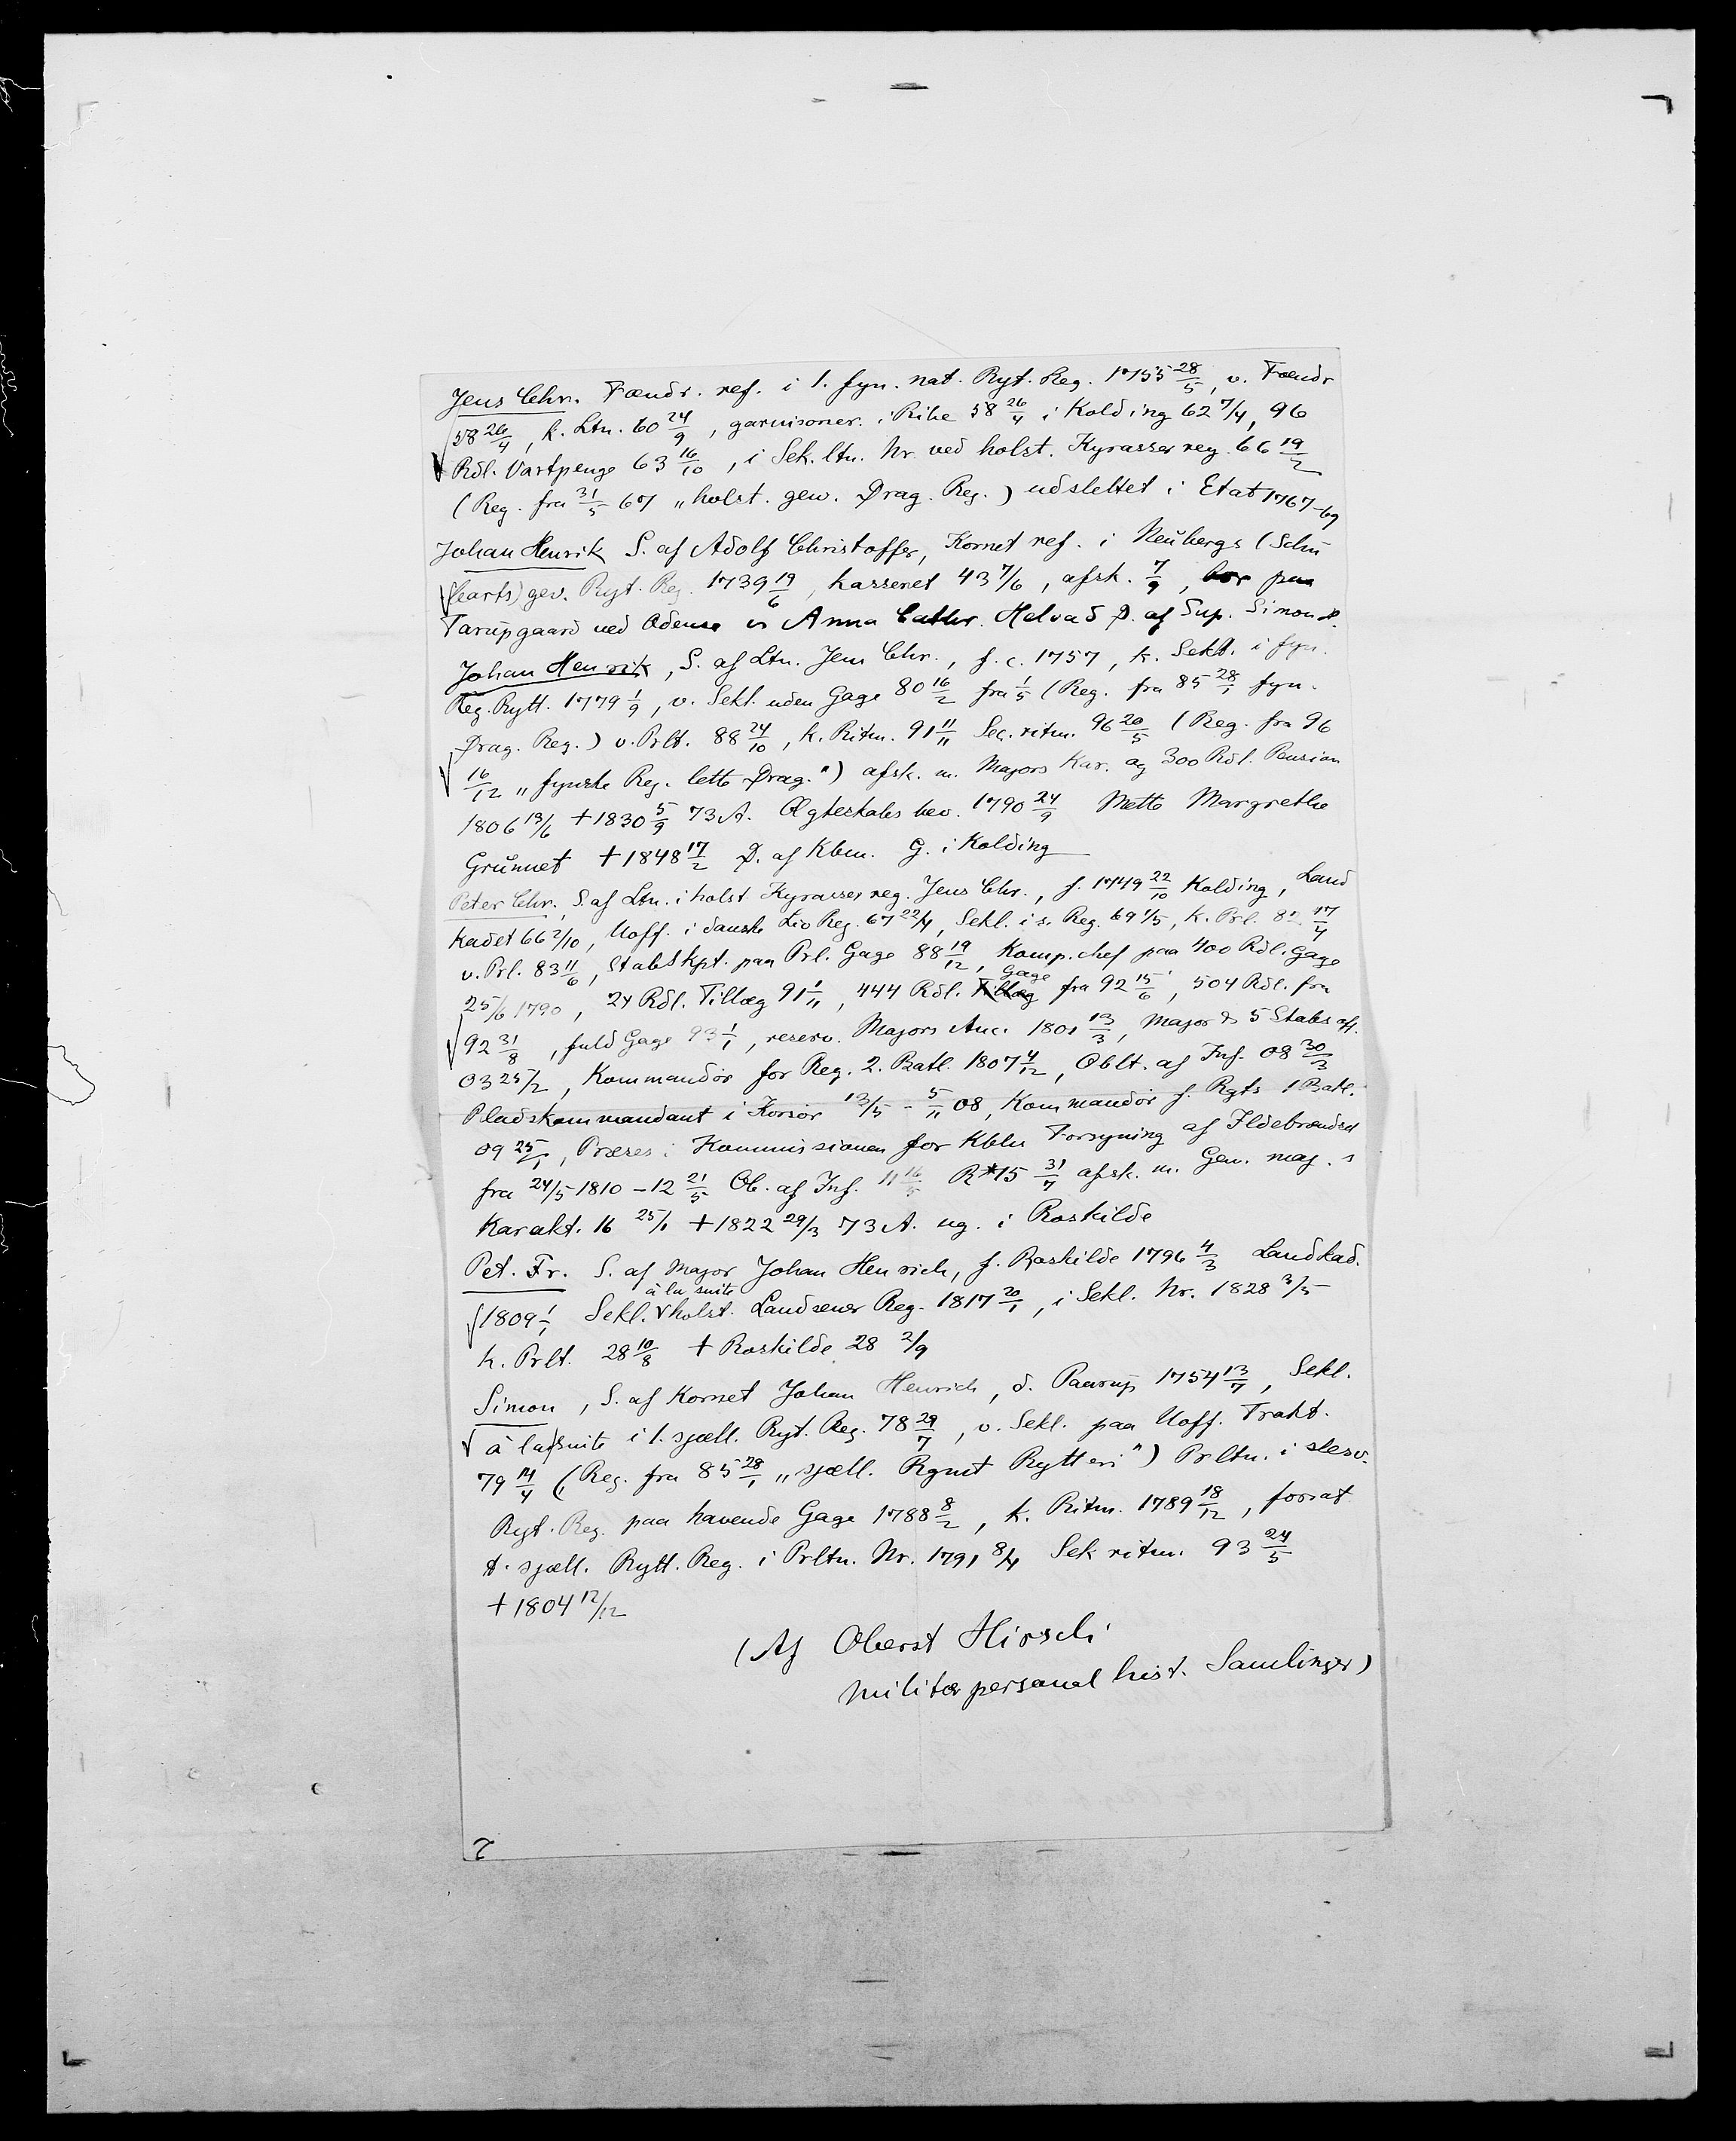 Jens Chr. Fændr. ref. i 1. fyn. nat. Ryt. Reg. 1755 28/5, v. Fændr
58 26/4, k. Ltn. 60 24/9, garnisoner. i Ribe 58 26/4 i Kolding 62 7/4, 96
Rdl. Vartpenge 63 16/10, i Sek. ltn. Nr. ved holst. Kyrasser reg. 66 19/2
(Reg. fra 31/5 67 „holst. gev. Drag. Reg.) udslettet i Etat 1767-69
Johan Henrik S. af Adolf Christoffer, Kornet ref. i Neübergs (Schu
bearts) gev. Ryt. Reg. 1739 19/6, kasseret 43 7/6, afsk. 7/9, bor paa
Tarupgaard ved Odense Anna Cathr. Helvad D. af Sup. Simon H.
Johan Henrik, S. af Ltn. Jens Chr., f. c. 1757, k. Sekt. i fyn.
Reg. Rytt. 1779 1/9, v. Sekl. uden Gage 80 16/2 fra 1/5 (Reg. fra 85 28/1 fyn.
Drag. Reg.) v. Prlt. 88 24/10, k. Ritm. 91 11/11 Sec. ritm. 96 20/5 (Reg. fra 96
16/12 „fynske Reg. lette Drag.") afsk. m. Majors Kar. og 300 Rdl. Pension
1806 13/6 +1830 5/9 73 A. Ægteskabs bev. 1790 24/9 Mette Margrethe
Grünnet +1848 17/2 D. af Kbm. G. i Kolding
Peter Chr. S. af Ltn. i holst Kyrasser reg. Jens Chr., f. 1749 22/10 Kolding, Land
kadet 66 2/10, Uoff. i danske Liv Reg. 67 22/4, Sekl. i s. Reg. 69 1/5, k. Prl. 17/4
v. Prl. 83 11/6, Stabskpt. paa Prl. Gage 88 19/12, Komp. chef paa 400 Rdl. Gage
25/6 1790, 24 Rdl. Tillæg 91 1/11, 444 Rdl. Gage fra 92 15/6, 504 Rdl. fra
92 31/8, fuld Gage 93 1/1, reserv. Majors Anc. 1801 13/3, Major & 5 Stabs off.
03 25/2, Kommandør for Reg. 2. Batl. 1807 4/12, Oblt. af Inf. 08 30/3
Pladskommandant i Korsør 13/5 - 5/11 08, Kommandør f. Rgts 1 Batl.
09 25/1, Præses i Kommissionen for Kbhn Forsyning af Ildebrændsel
fra 24/5 1810 - 12 21/5 Ob. af Inf. 11 16/5 R*15 31/7 afsk. m. Gen. maj. s
Karakt. 16 25/1 +1822 29/3 73 A. ug. i Roskilde
Pet. Fr. S. af Major Johan Henrich, f. Roskilde 1796 4/3 Landkad.
1809 1/1 Sekl. à la suite v holst. Landsener Reg. 1817 20/1, i Sekl. Nr. 1828 3/5
k. Prlt. 28 10/8 + Roskilde 28 2/9
Simon, S. af Kornet Johan Henrich, d. Paarup 1754 13/7, Sekl.
à la suite i 1. sjæll. Ryt. Reg. 78 29/7, v. Sekl. paa Uoff. Trakt.
79 14/4 (Reg. fra 85 28/1 „sjæll. Rgmt Rytteri") Prltn. i slesv.
Ryt. Reg. paa havende Gage 1788 8/2, k. Ritm. 1789 18/12, forsat
t. sjæll. Rytt. Reg. i Prltn. Nr. 1791 8/4 Sek ritm. 93 24/5
+1804 12/12
(Af Oberst Hirsch
militær personal hist. Samlinger)